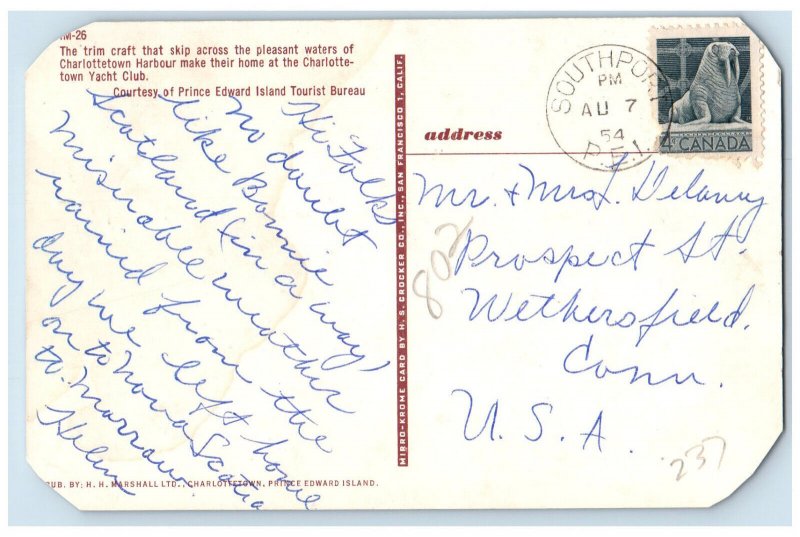 M-26
The trim craft that skip across the pleasant waters of
Charlottetown Harbour make their home at the Charlotte-
town Yacht Club.
Courtesy of Prince Edward Island Tourist Bureau
Hi Folks
No doubt
like Bonnie
Scotland (in a way,
Miserable weather
rained from the
day we left home
on to Nova Scotia
to-morrow.
Helen
UB. BY: H. H. MARSHALL LTD., CHARLOTTETOWN, PRINCE EDWARD ISLAND.
MIRRO-KROME CARD BY H. S. CROCKER CO., INC., SAN FRANCISCO 1, CALIF.
SOUTHPORT
PM
AU 7
54
P.E.I.
4¢ CANADA
address
Mr. + Mrs. Delaney
Prospect St.
Wethersfield.
Conn.
U.S.A.
802
237